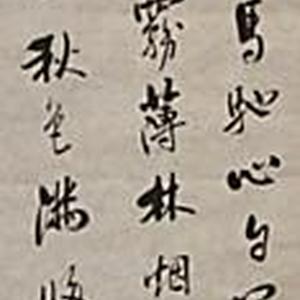 馬馳心自
霧薄林烟
秋色滿